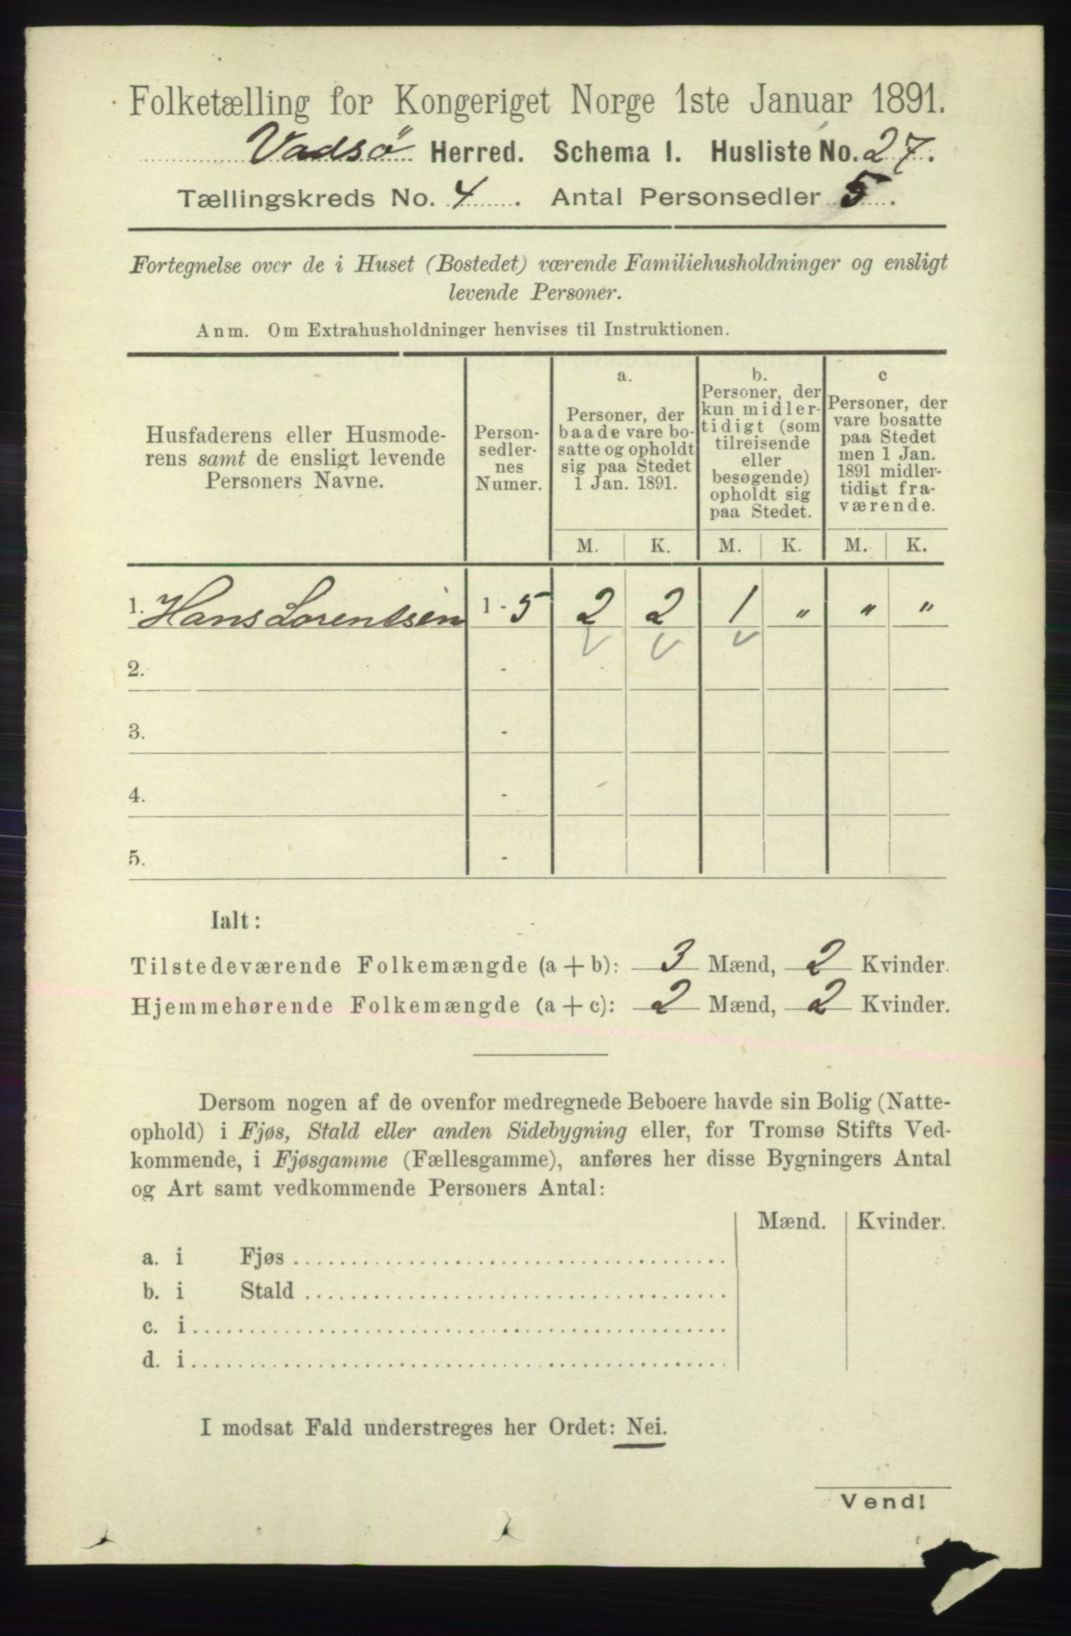 Folketælling for Kongeriget Norge 1ste Januar 1891.
Vadsø Herred. Schema I. Husliste No. 27.
Tællingskreds No. 4. Antal Personsedler 5.
Fortegnelse over de i Huset (Bostedet) værende Familiehusholdninger og ensligt
levende Personer.
Anm. Om Extrahusholdninger henvises til Instruktionen.
Husfaderens eller Husmode-
rens samt de ensligt levende
Personers Navne.
Person-
sedler-
nes
Numer.
a.
Personer, der
baade vare bo-
satte og opholdt
sig paa Stedet
1 Jan. 1891.
b.
Personer, der
kun midler-
tidigt (som
tilreisende
eller
besøgende)
opholdt sig
paa Stedet.
c
Personer, der
vare bosatte
paa Stedet
men 1 Jan.
1891 midler-
tidigt fra-
værende.
M. K. M. K. M. K.
1. Hans Lorentsen 1 - 5 2 2 1 " " "
2. -
3. -
4. -
5. -
Ialt:
Tilstedeværende Folkemængde (a + b): 3 Mænd, 2 Kvinder.
Hjemmehørende Folkemængde (a + c): 2 Mænd, 2 Kvinder.
Dersom nogen af de ovenfor medregnede Beboere havde sin Bolig (Natte-
ophold) i Fjøs, Stald eller anden Sidebygning eller, for Tromsø Stifts Ved-
kommende, i Fjøsgamme (Fællesgamme), anføres her disse Bygningers Antal
og Art samt vedkommende Personers Antal:
Mænd. Kvinder.
a. i Fjøs
b. i Stald
c. i
d. i
I modsat Fald understreges her Ordet: Nei.
Vend!